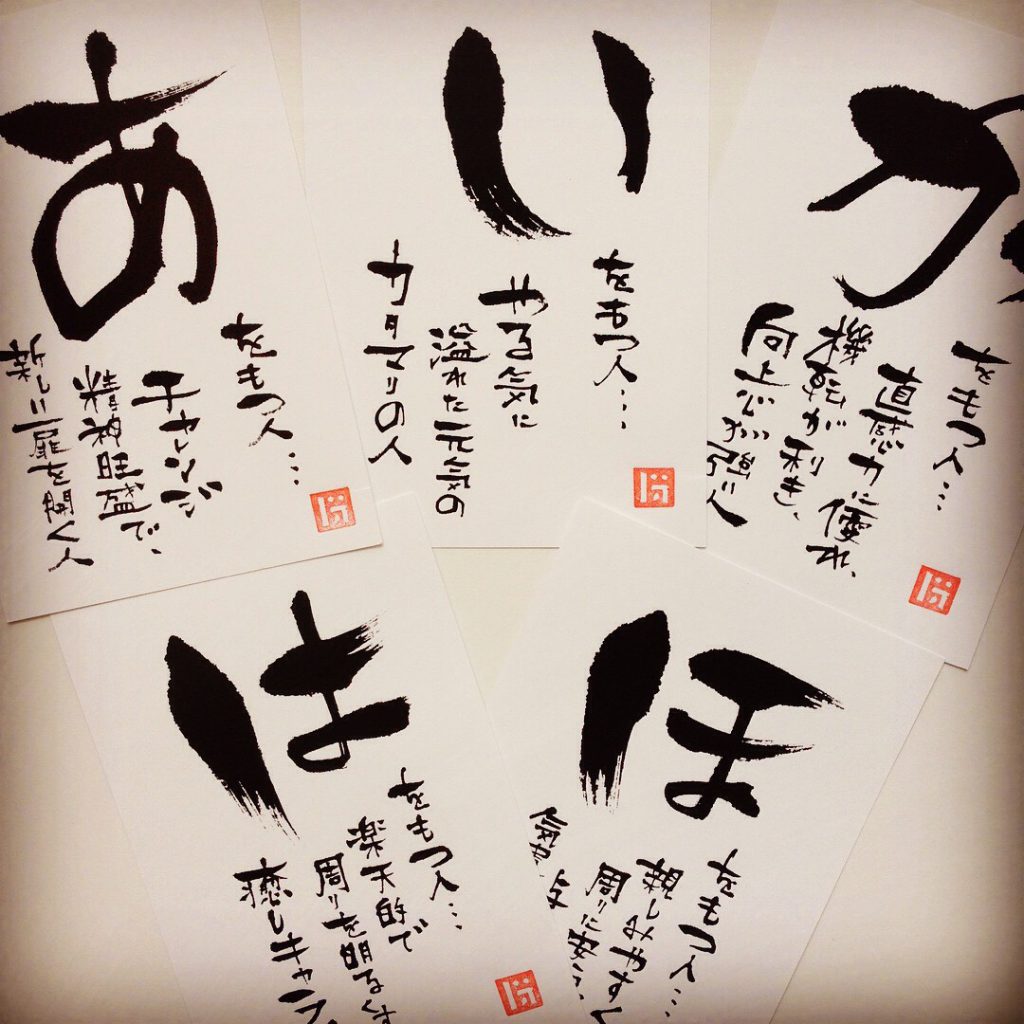 あ
をもつ人…
チャレンジ
精神旺盛で、
新しい扉を開く人
い
をもつ人…
やる気に
溢れた元気の
カタマリの人
か
をもつ人…
直感力に優れ、
機転が利き、
向上心が強い人
は
をもつ人…
楽天的で
周りを明るくす
癒しキャラ
ほ
をもつ人…
親しみやすく
周りに安